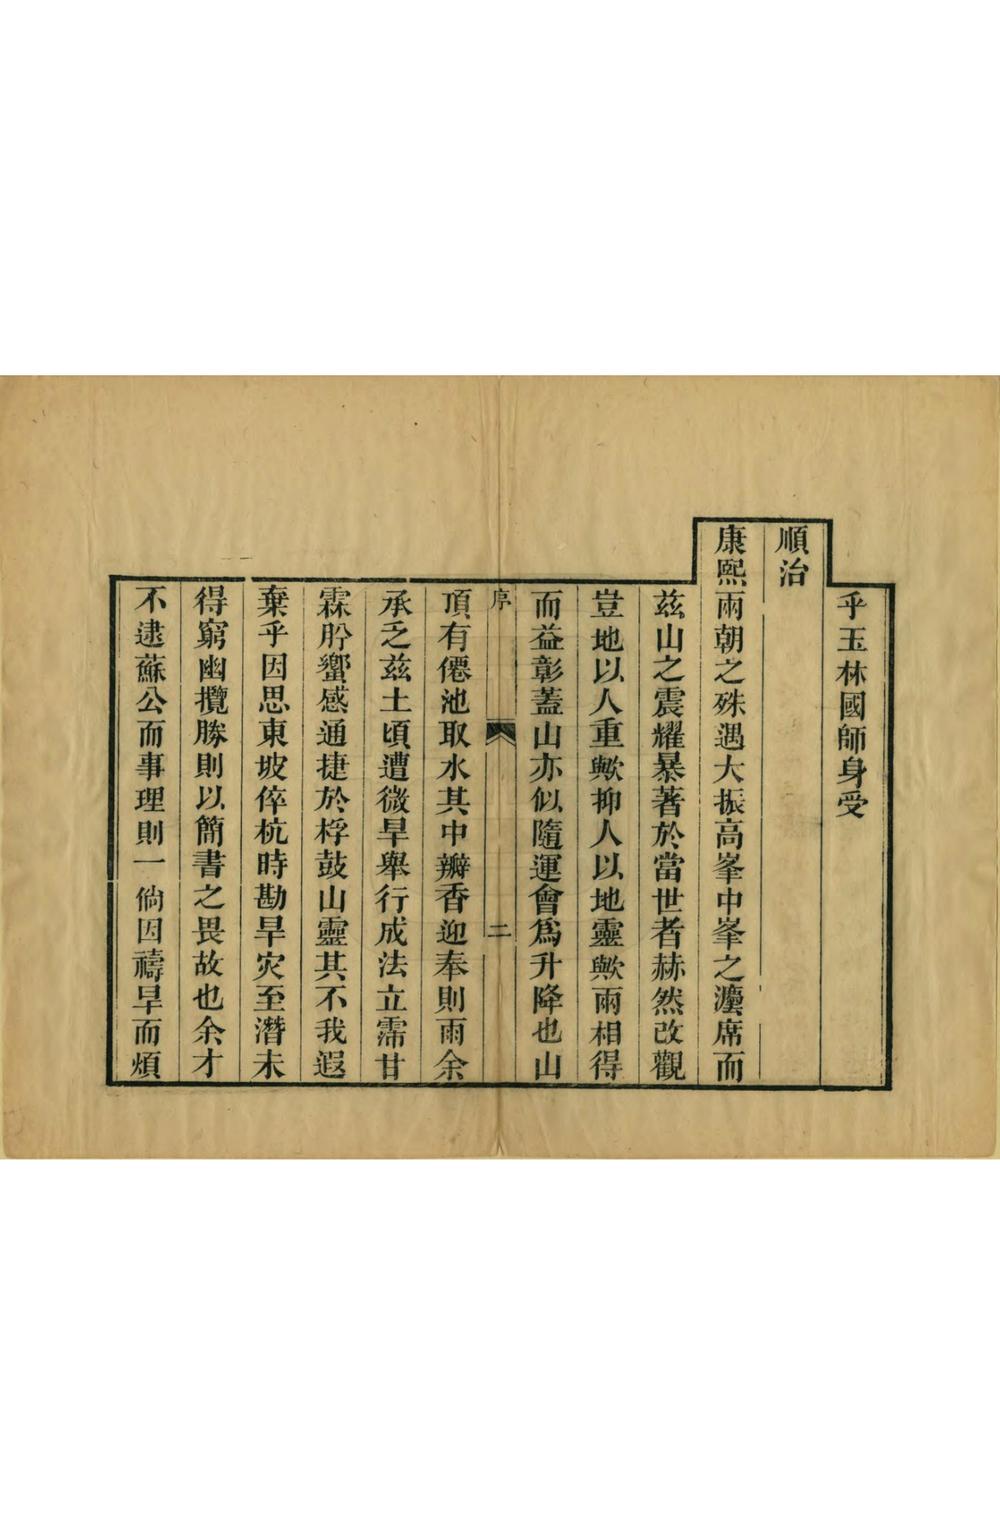 乎玉林國師身受
順治
康熙兩朝之殊遇大振高峯中峯之瀍席而
茲山之震耀暴著於當世者赫然改觀
豈地以人重歟抑人以地靈歟兩相得
而益彰蓋山亦似隨運會爲升降也山
序 二
頂有僊池取水其中瓣香迎奉則雨余
承乏茲土頃遭微旱舉行成法立霈甘
霖肸蠁感通捷於桴鼓山靈其不我遐
棄乎因思東坡倅杭時勘旱灾至潛未
得窮幽攬勝則以簡書之畏故也余才
不逮蘇公而事理則一倘因禱旱而煩